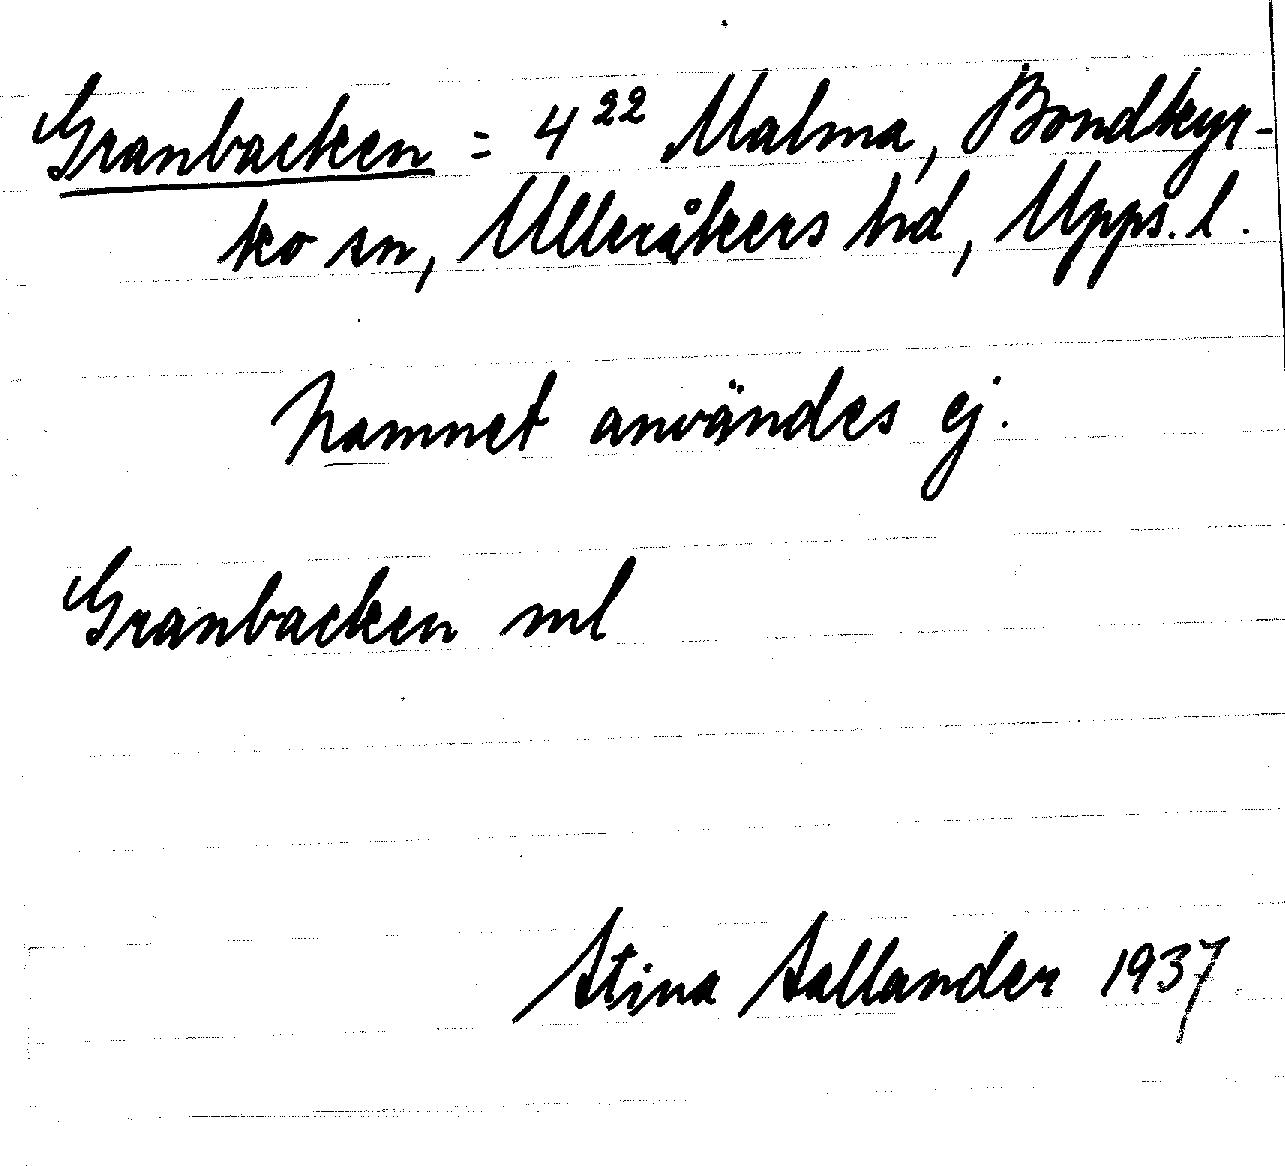 Granbacken = 4²² Malma, Bondkyr-
ko sn, Ulleråkers hd, Upps. l.
Namnet användes ej.
Granbacken ml
Stina Sallander 1937